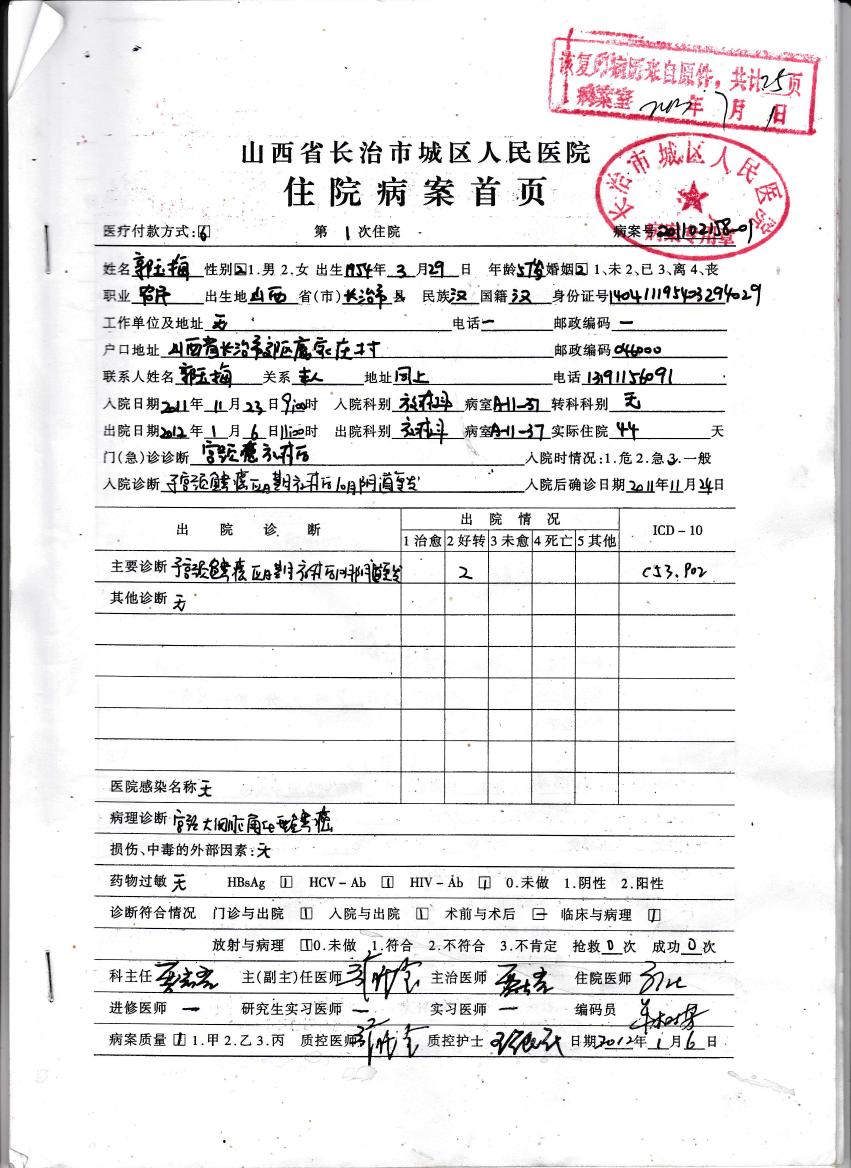 该复印病历来自原件，共计25页
病案室 年7月1日
山西省长治市城区人民医院
长治市城区人民医院
住院病案首页
病案专用章
医疗付款方式:6 第1次住院 病案号
姓名郭玉梅 性别2 1.男 2.女 出生1954年3月29日 年龄57岁 婚姻2 1、未2、已3、离4、丧
职业农民 出生地山西省(市)长治市县 民族汉 国籍汉 身份证号140411195403294029
工作单位及地址 无 电话— 邮政编码—
户口地址 山西省长治市郊区 家庄村 邮政编码046000
联系人姓名郭玉梅 关系本人 地址同上 电话13191156091
入院日期2011年11月23日9:00时 入院科别放疗科 病室A-11-37 转科科别 无
出院日期2012年1月6日11:00时 出院科别放疗科 病室A-11-37 实际住院44天
门(急)诊诊断 宫颈癌放疗后 入院时情况:1.危2.急3.一般
入院诊断 子宫颈鳞癌 期放疗后10月阴道复发 入院后确诊日期2011年11月24日
出院诊断 出院情况 ICD-10
1治愈 2好转 3未愈 4死亡 5其他
主要诊断 子宫颈鳞癌 期放疗后 阴道复发 2 C53.902
其他诊断 无
医院感染名称 无
病理诊断 宫颈大细胞角化型鳞癌
损伤、中毒的外部因素:无
药物过敏 无 HBsAg 1 HCV-Ab 1 HIV-Ab 1 0.未做 1.阴性 2.阳性
诊断符合情况 门诊与出院 1 入院与出院 1 术前与术后 — 临床与病理 1
放射与病理 1 0.未做 1.符合 2.不符合 3.不肯定 抢救0次 成功0次
科主任 主(副主)任医师 主治医师 住院医师
进修医师 — 研究生实习医师 — 实习医师 — 编码员
病案质量 1 1.甲2.乙3.丙 质控医师 质控护士 日期2012年1月6日